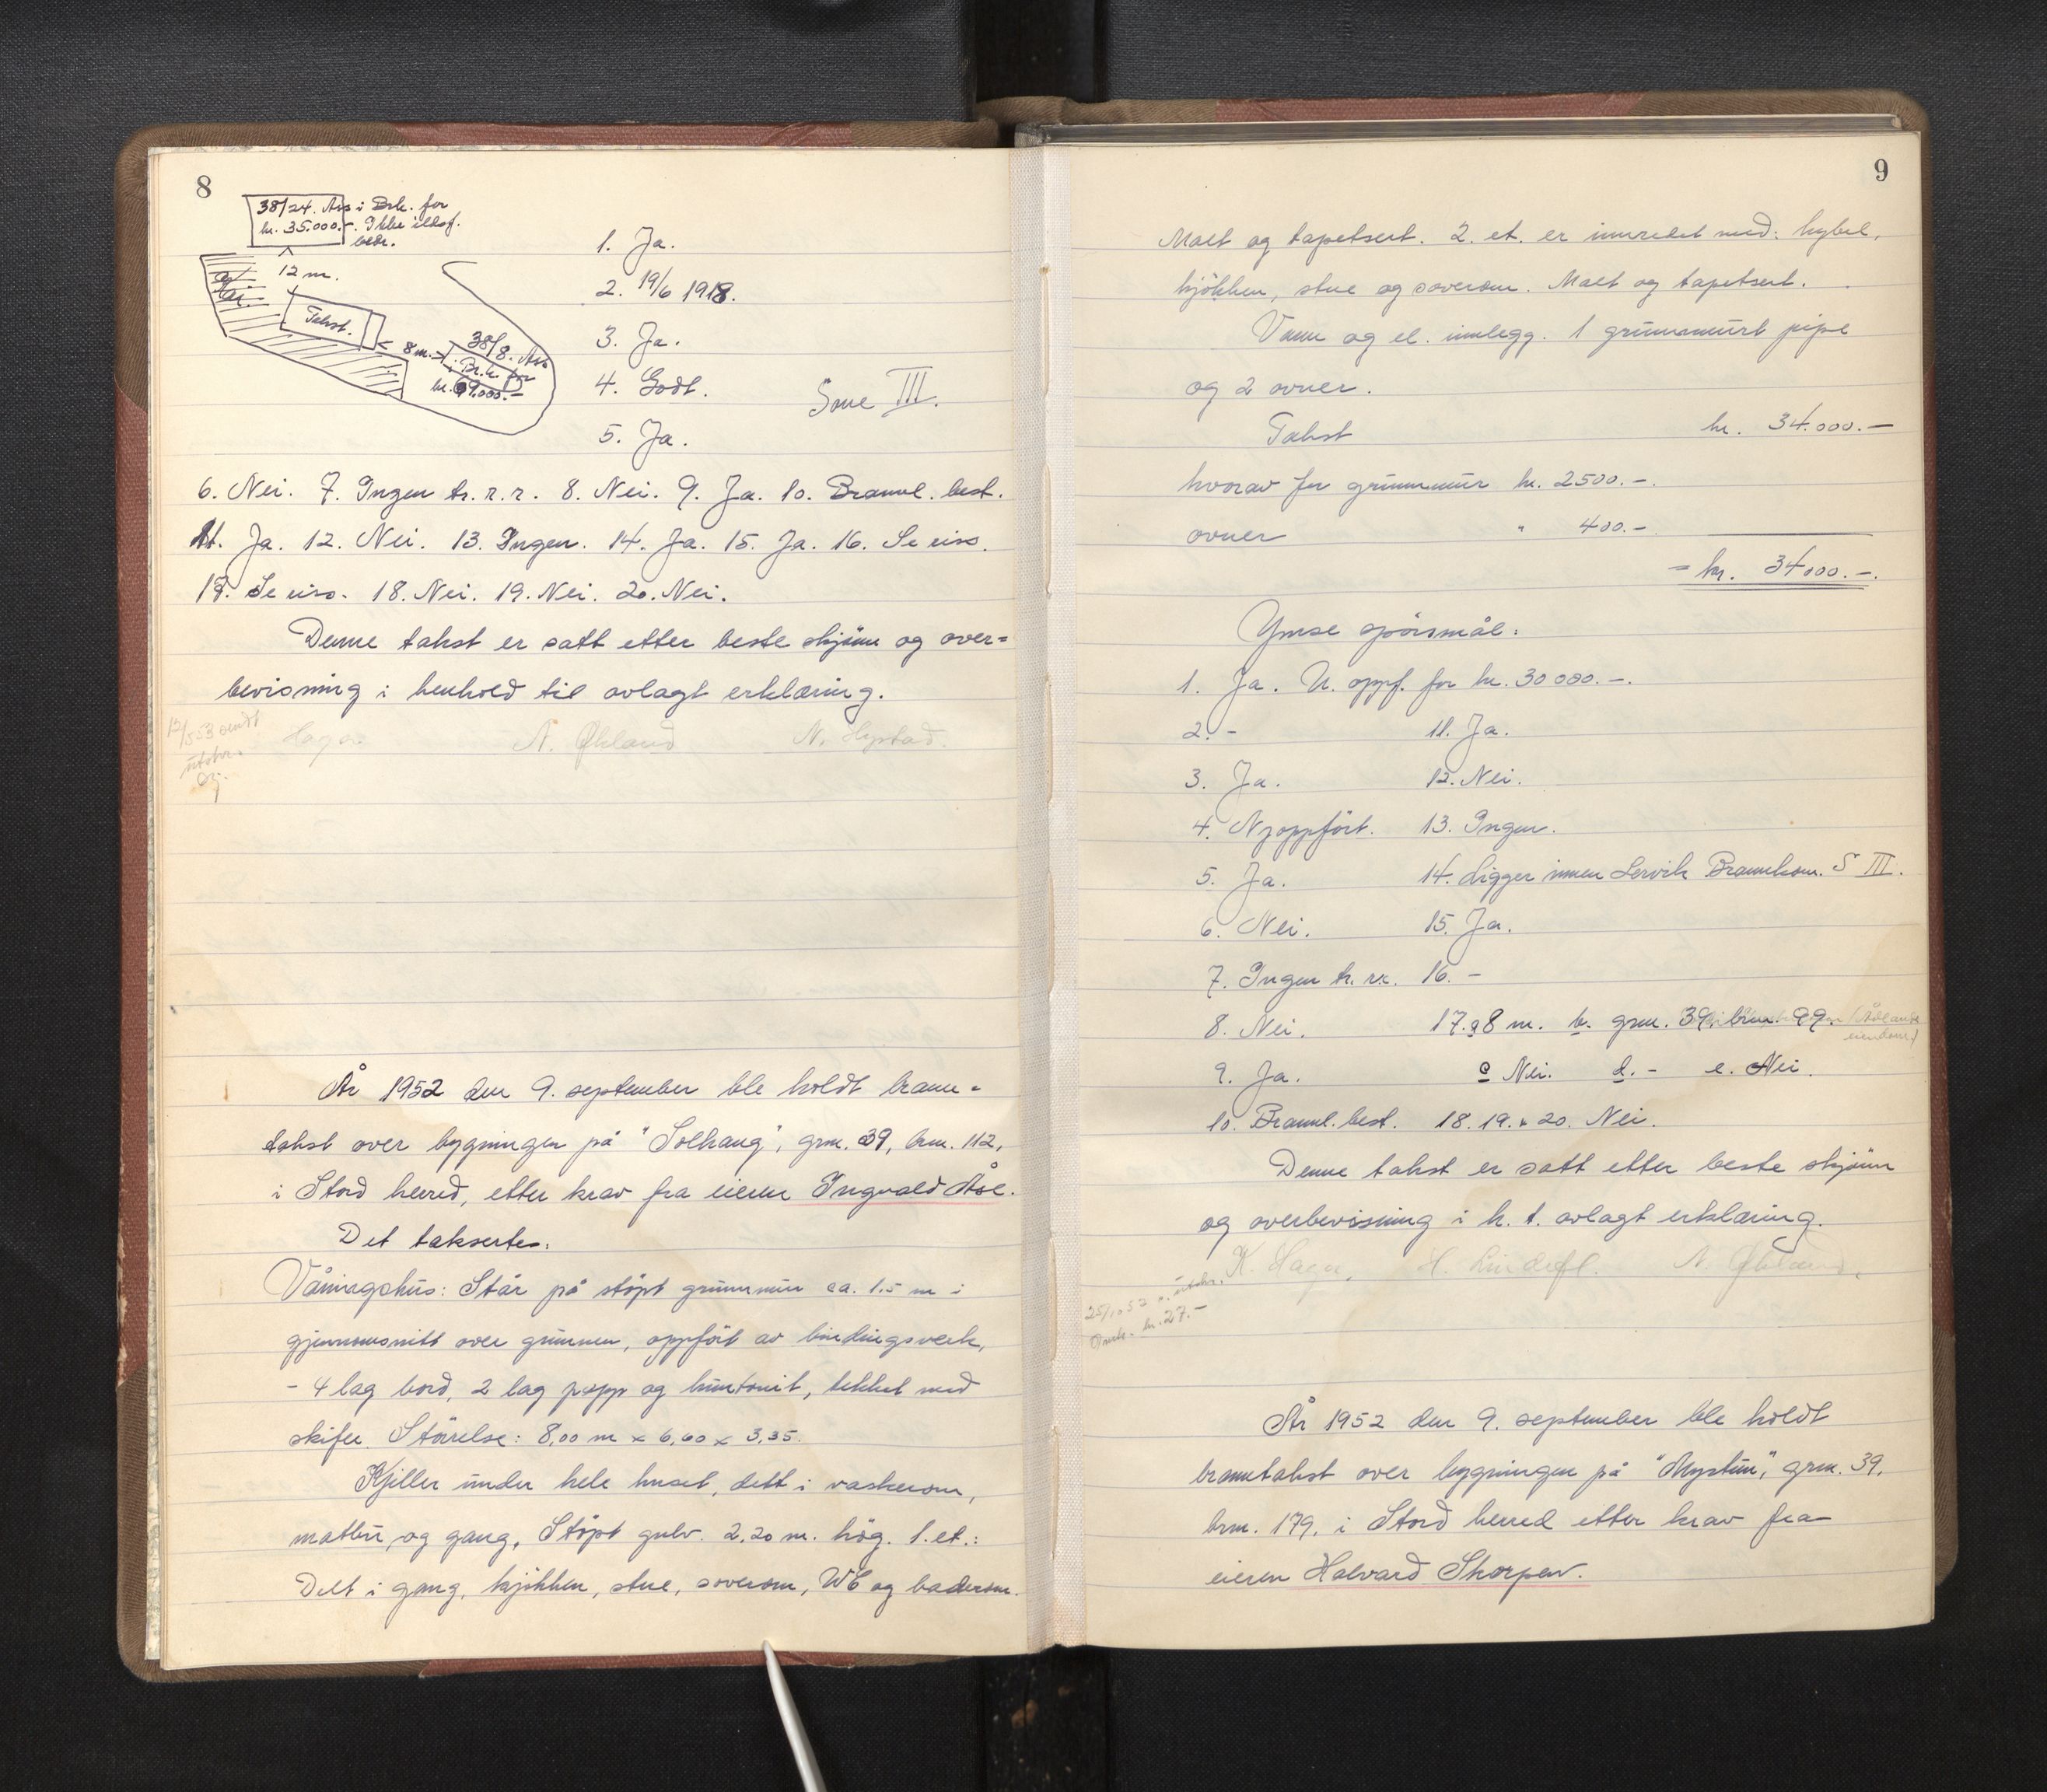 8
38/24. Ass i Brk. for
kr. 35.000.-. Ikke ildsf.
bedr.
12 m.
Takst.
8 m.
38/8. Ass
i Br.k. for
kr. 69.000.-
1. Ja.
2. 19/6 1918.
3. Ja.
4. Godt.
Sone III.
5. Ja.
6. Nei. 7. Ingen h.r.r. 8. Nei. 9. Ja. 10. Brannl. best.
11. Ja. 12. Nei. 13. Ingen. 14. Ja. 15. Ja. 16. Se riss.
17. Se riss. 18. Nei. 19. Nei. 20. Nei.
Denne takst er satt etter beste skjönn og over=
bevisning i henhold til avlagt erklæring.
sendt
utskr.
Haga. A. Økland N. Hystad.
År 1952 den 9. september ble holdt brann-
takst over bygningen på "Solhaug", grm. 39, brm. 112,
i Stord herred, etter krav fra eieren Ingvald Åse.
Det taksertes:
Våningshus: Står på støpt grunnmur ca. 1.5 m i
gjennomsnitt over grunnen, oppfört av bindingsverk,
- 4 lag bord, 2 lag papp og huntonit, tekket med
skifer. Störrelse: 8,00 m x 6,60 x 3,35.
Kjeller under hele huset, delt i vaskerom,
matbu, og gang. Støpt gulv. 2,20 m. hög. 1. et.:
Delt i gang, kjökken, stue, soverom, WC og baderom.
9
Malt og tapetsert. 2. et. er innredet med: hybel,
kjökken, stue og soverom. Malt og tapetsert.
Vann og el. innlegg. 1 grunnmurt pipe
og 2 ovner.
Takst kr. 34.000.-
hvorav for grunnmur kr. 2500.-.
ovner " 400.-
= kr. 34000.-.
Ymse spörsmål:
1. Ja. N. oppf. for kr. 30000.-.
2. - 11. Ja.
3. Ja. 12. Nei.
4. Nyoppfört. 13. Ingen.
5. Ja. 14. Ligger innen Lervik Brannkom. S III.
6. Nei. 15. Ja.
7. Ingen h. rr. 16. -
8. Nei. 17. a 8 m. b. grm. 39, brm. 99. (Ådland
eiendom)
9. Ja. c Nei. d. - e. Nei.
10. Brannl. best. 18. 19. & 20. Nei.
Denne takst er satt etter beste skjönn
og overbevisning i h. t. avlagt erklæring.
K. Haga. H. A. Økland.
25/10 52 s. utskr.
Omk. kr. 27.-
År 1952 den 9. september ble holdt
branntakst over bygningen på "Nystun", grm. 39,
brm. 179, i Stord herred etter krav fra
eieren Halvard Skorpen.